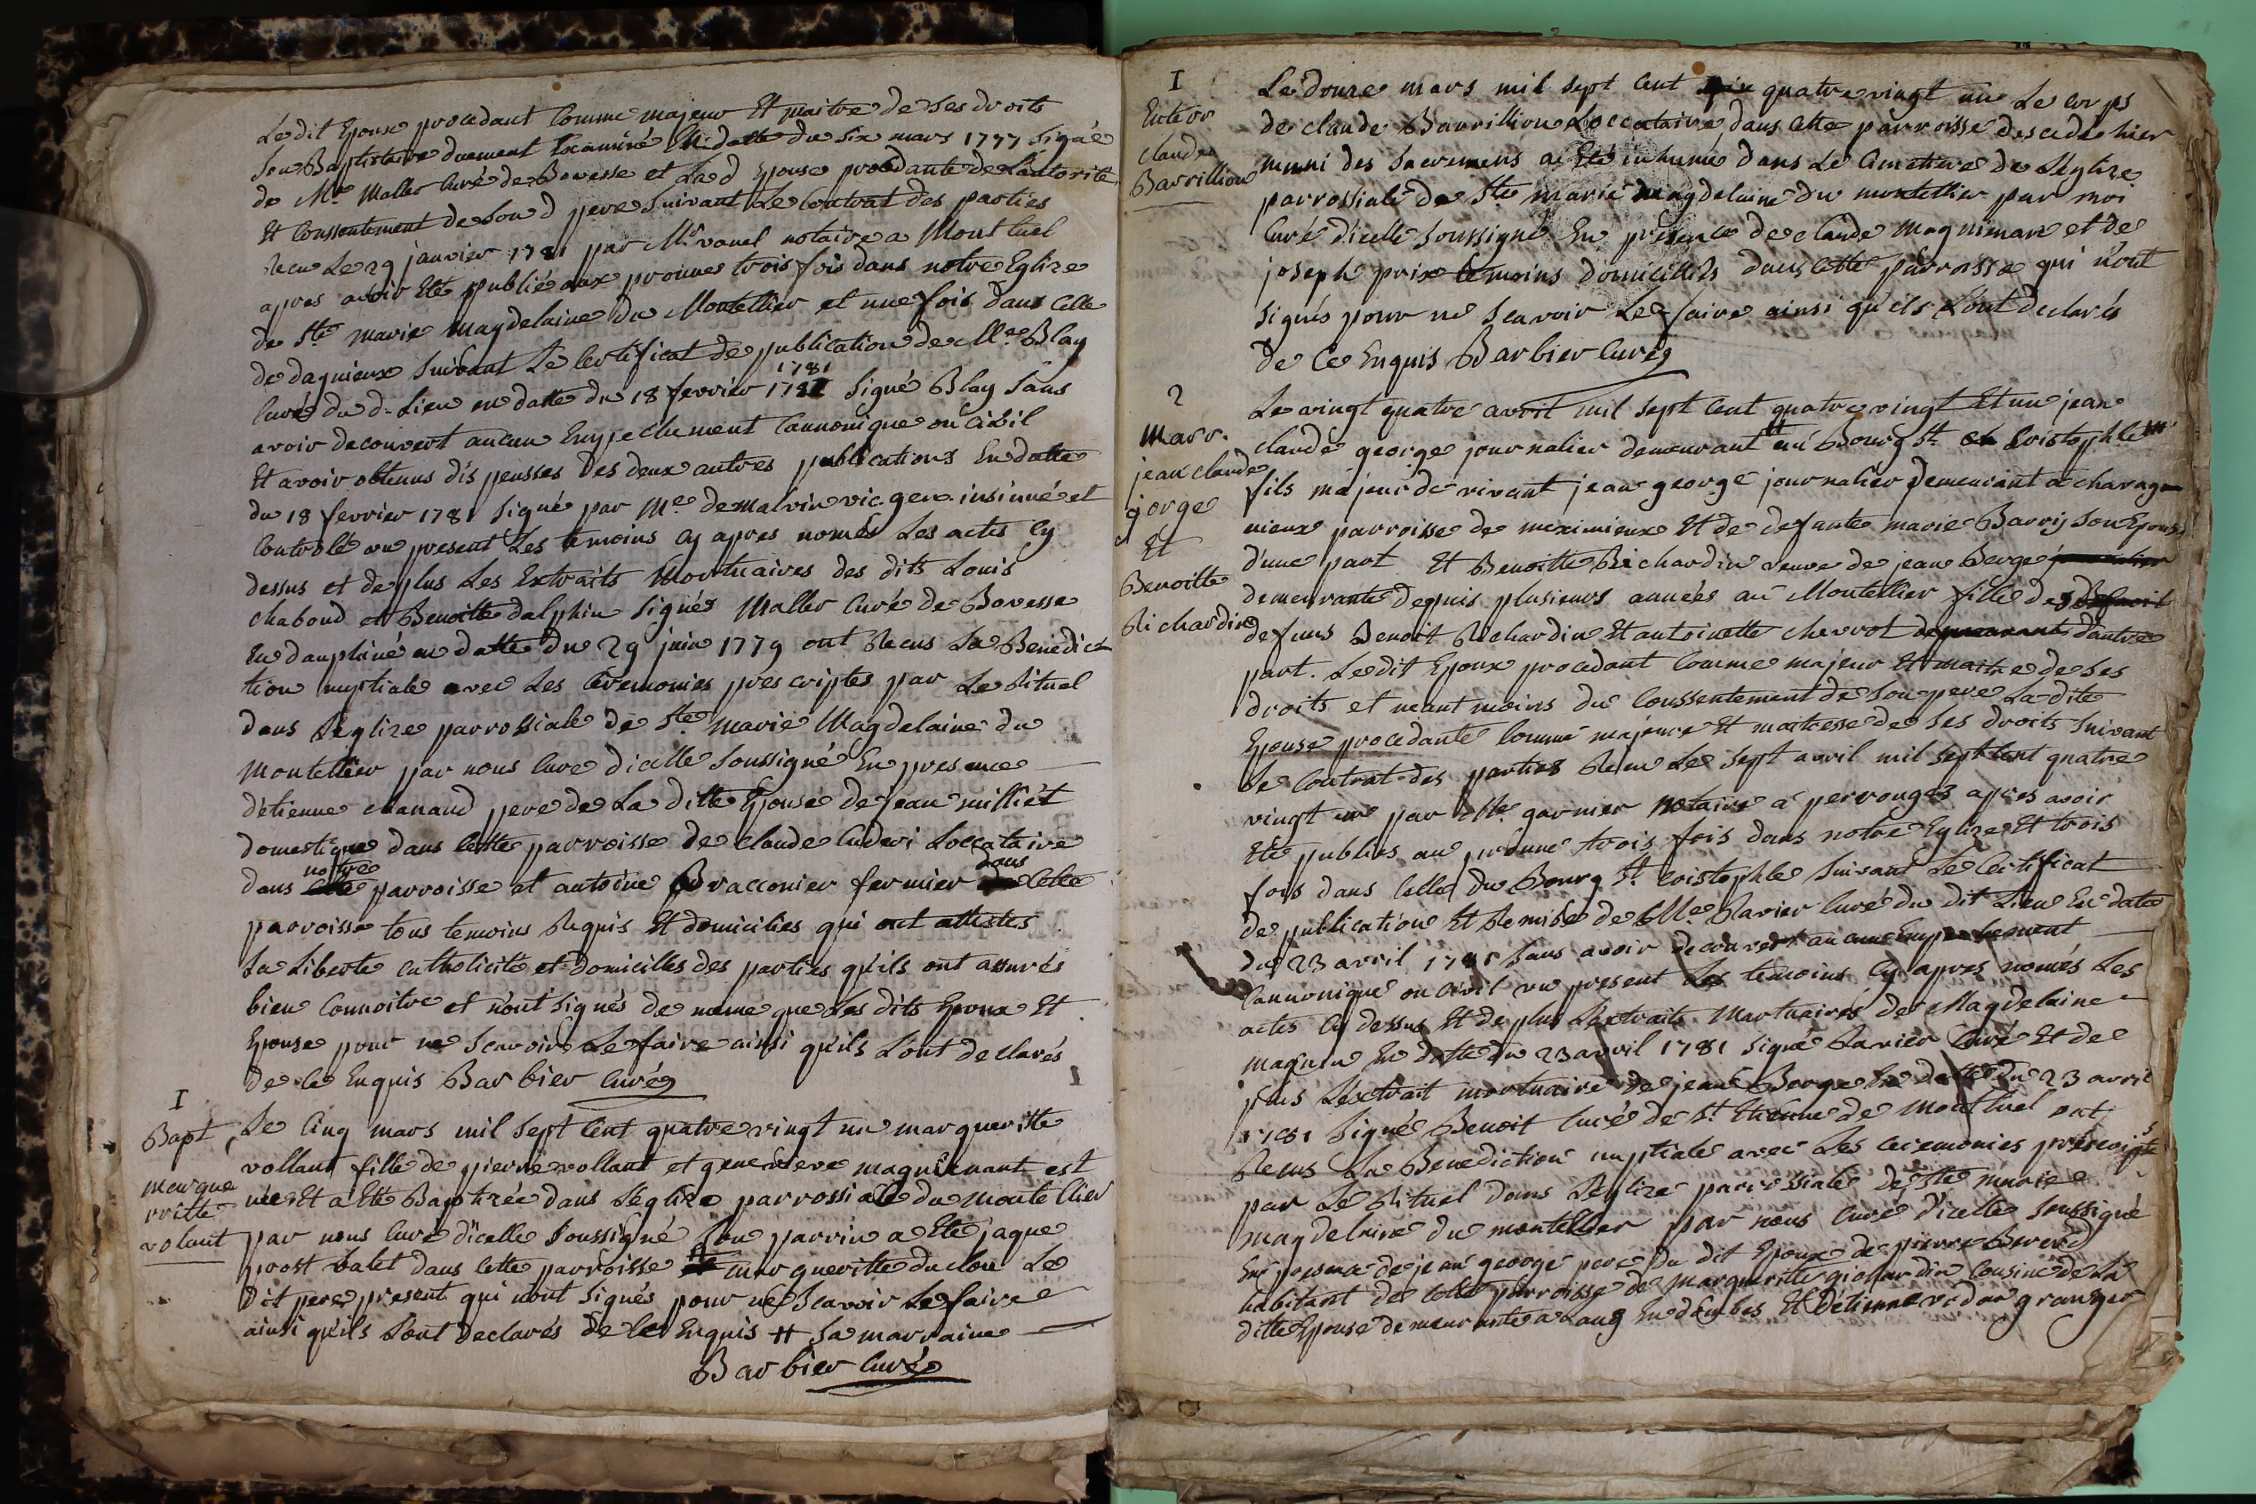 Le dit Epoux procedant comme majeur Et maitre de ses droits
son Baptistaire duement Examiné En datte du six mars 1777 signé
de Mre Maller curé de Boresse et La d Epouse procedante de Lautorité
Et Conssentement de son d pere suivant Le Contrat des parties
Recu Le 29 janvier 1781 par Mre vauel notaire a Montluel
apres avoir Eté publié aux pronnes trois fois dans notre Eglize
de Ste marie magdelaine du Montellier et une fois dans celle
de dagnieux suivant Le certificat de publication de Mre Blay
curé du d. Lieu en datte du 18 fevrier 1781 signé Blay sans
avoir decouvert aucun Empechement Cannonique ou Civil
Et avoir obtenus dispensses des deux autres publications En datte
du 18 fevrier 1781 signé par Mre de malvin vic. gen. insinué et
Controlé vu present Les temoins cy apres només Les actes cy
dessus et de plus Les Extraits Mortuaires des dits Louis
chaboud et Benoitte dalphin signés Maller curé de Boresse
En dauphiné en datte du 29 juin 1779 ont Recus La Benedic
tion nuptiale avec Les Ceremonies prescriptes par Le Rituel
dans Leglize parrossiale de Ste marie Magdelaine du
Montellier par nous curé dicelle soussigné En presence
détienne chanaud pere de La ditte Epouse de jean milliet
domestique dans cette parroisse de claude Luderi Loccataire
dans notre parroisse et antoine Bracconier fermier dans Cette
parroisse tous temoins Requis Et domicilies qui ont attestes
La Liberte catholicité et domicilles des parties qu'ils ont assurés
bien Connoitre et n'ont signés de meme que Les dits Epoux Et
Epouse pour ne scavoir Le faire ainsi qu'ils L'ont declarés
de ce Enquis Barbier curé
I
Bapt
marque
ritte
volant
Le Cinq mars mil sept Cent quatre vingt un marqueritte
vollant fille de pierre vollant et genevieve magninant est
née Et a Eté Baptizée dans Léglize parrossiale du Montellier
par nous Curé dicelle soussigné son parrin a Eté jaque
prost valet dans Cette parroisse # marqueritte duclou Le
dit pere present qui n'ont signés pour ne Scavoir Le faire
ainsi qu'ils L'ont declarés de ce Enquis # La marraine
Barbier Curé
I
Enterr
Claude
Barrillion
Le douze mars mil sept Cent quatre vingt un Le corps
de claude Barrillion Loccataire dans Cette parroisse descedé hier
muni des sacremens a Eté inhumé dans Le Cimetiere de Léglize
parrossiale de Ste marie magdelaine du montellier par moi
Curé dicelle soussigné En présence de claude magninan et de
joseph prix temoins domicilliés dans cette parroisse qui n'ont
signés pour ne Scavoir Le faire ainsi qu'ils L'ont declarés
de Ce Enquis Barbier Curé
2
Marr.
jean claude
gorge
Et
Benoitte
Richardin
Le vingt quatre avril mil sept Cent quatre vingt Et un jean
claude george journalier demeurant au Bourg St Cristophle
fils majeur de vivant jean george journalier demeurant a charag
nieux parroisse de meximieux Et de defunte marie Barrij son Epouse
d'une part Et Benoitte Richardin veuve de jean Berge
demeurante depuis plusieurs années au Montellier fille de
defuns Benoit Richardin Et antoinette cherrot d'autre
part. Le dit Epoux procedant Comme majeur Et maitre de ses
droits et neantmoins du Conssentement de son pere La dite
Epouse procedante Comme majeure Et maitresse de ses droits suivant
Le Contrat des parties Recu Le sept avril mil sept Cent quatre
vingt un par Mre garnier Notaire a perrouges apres avoir
Eté publiés au pronne trois fois dans notre Eglize Et trois
fois dans Celle du Bourg St Cristophle suivant Le Certificat
de publication Et Remise de Mre Ravier Curé du dit Lieu En date
du 23 avril 1781 sans avoir decouvert aucun Empechement
Cannonique ou Civil vu present Les temoins cy apres només Les
actes cy dessus Et de plus Lextrait Mortuaire de Magdelaine
magnin En datte du 23 avril 1781 signé Ravier Curé Et de
plus Lextrait mortuaire de jean Berge En datte du 23 avril
1781 signé Benoit Curé de St Etienne de Montluel ont
Recus La Benediction nuptiale avec Les Ceremonies prescriptes
par Le Rituel dans Léglize parrossiale de Ste marie
magdelaine du montellier par nous Curé dicelle soussigné
En presence de jean george pere du dit Epoux de pierre Beverd
habitant de Cette parroisse de margueritte gichardin Cousine de La
ditte Epouse demeurante a En dombes Et détienne granger